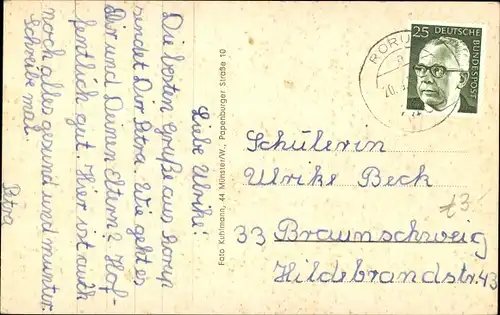 Liebe Ulrike!
Die besten Grüße aus Rorup
sendet Dir Petra. Wie geht es
Dir und Deinen Eltern? Hof-
fentlich gut. Hier ist auch
noch alles gesund und munter.
Schreibe mal.
Petra
Foto Kuhlmann, 44 Münster/W., Papenburger Straße 10
25 DEUTSCHE
BUNDESPOST
RORUP
Schülerin
Ulrike Beck
33 Braunschweig
Hildebrandstr. 43